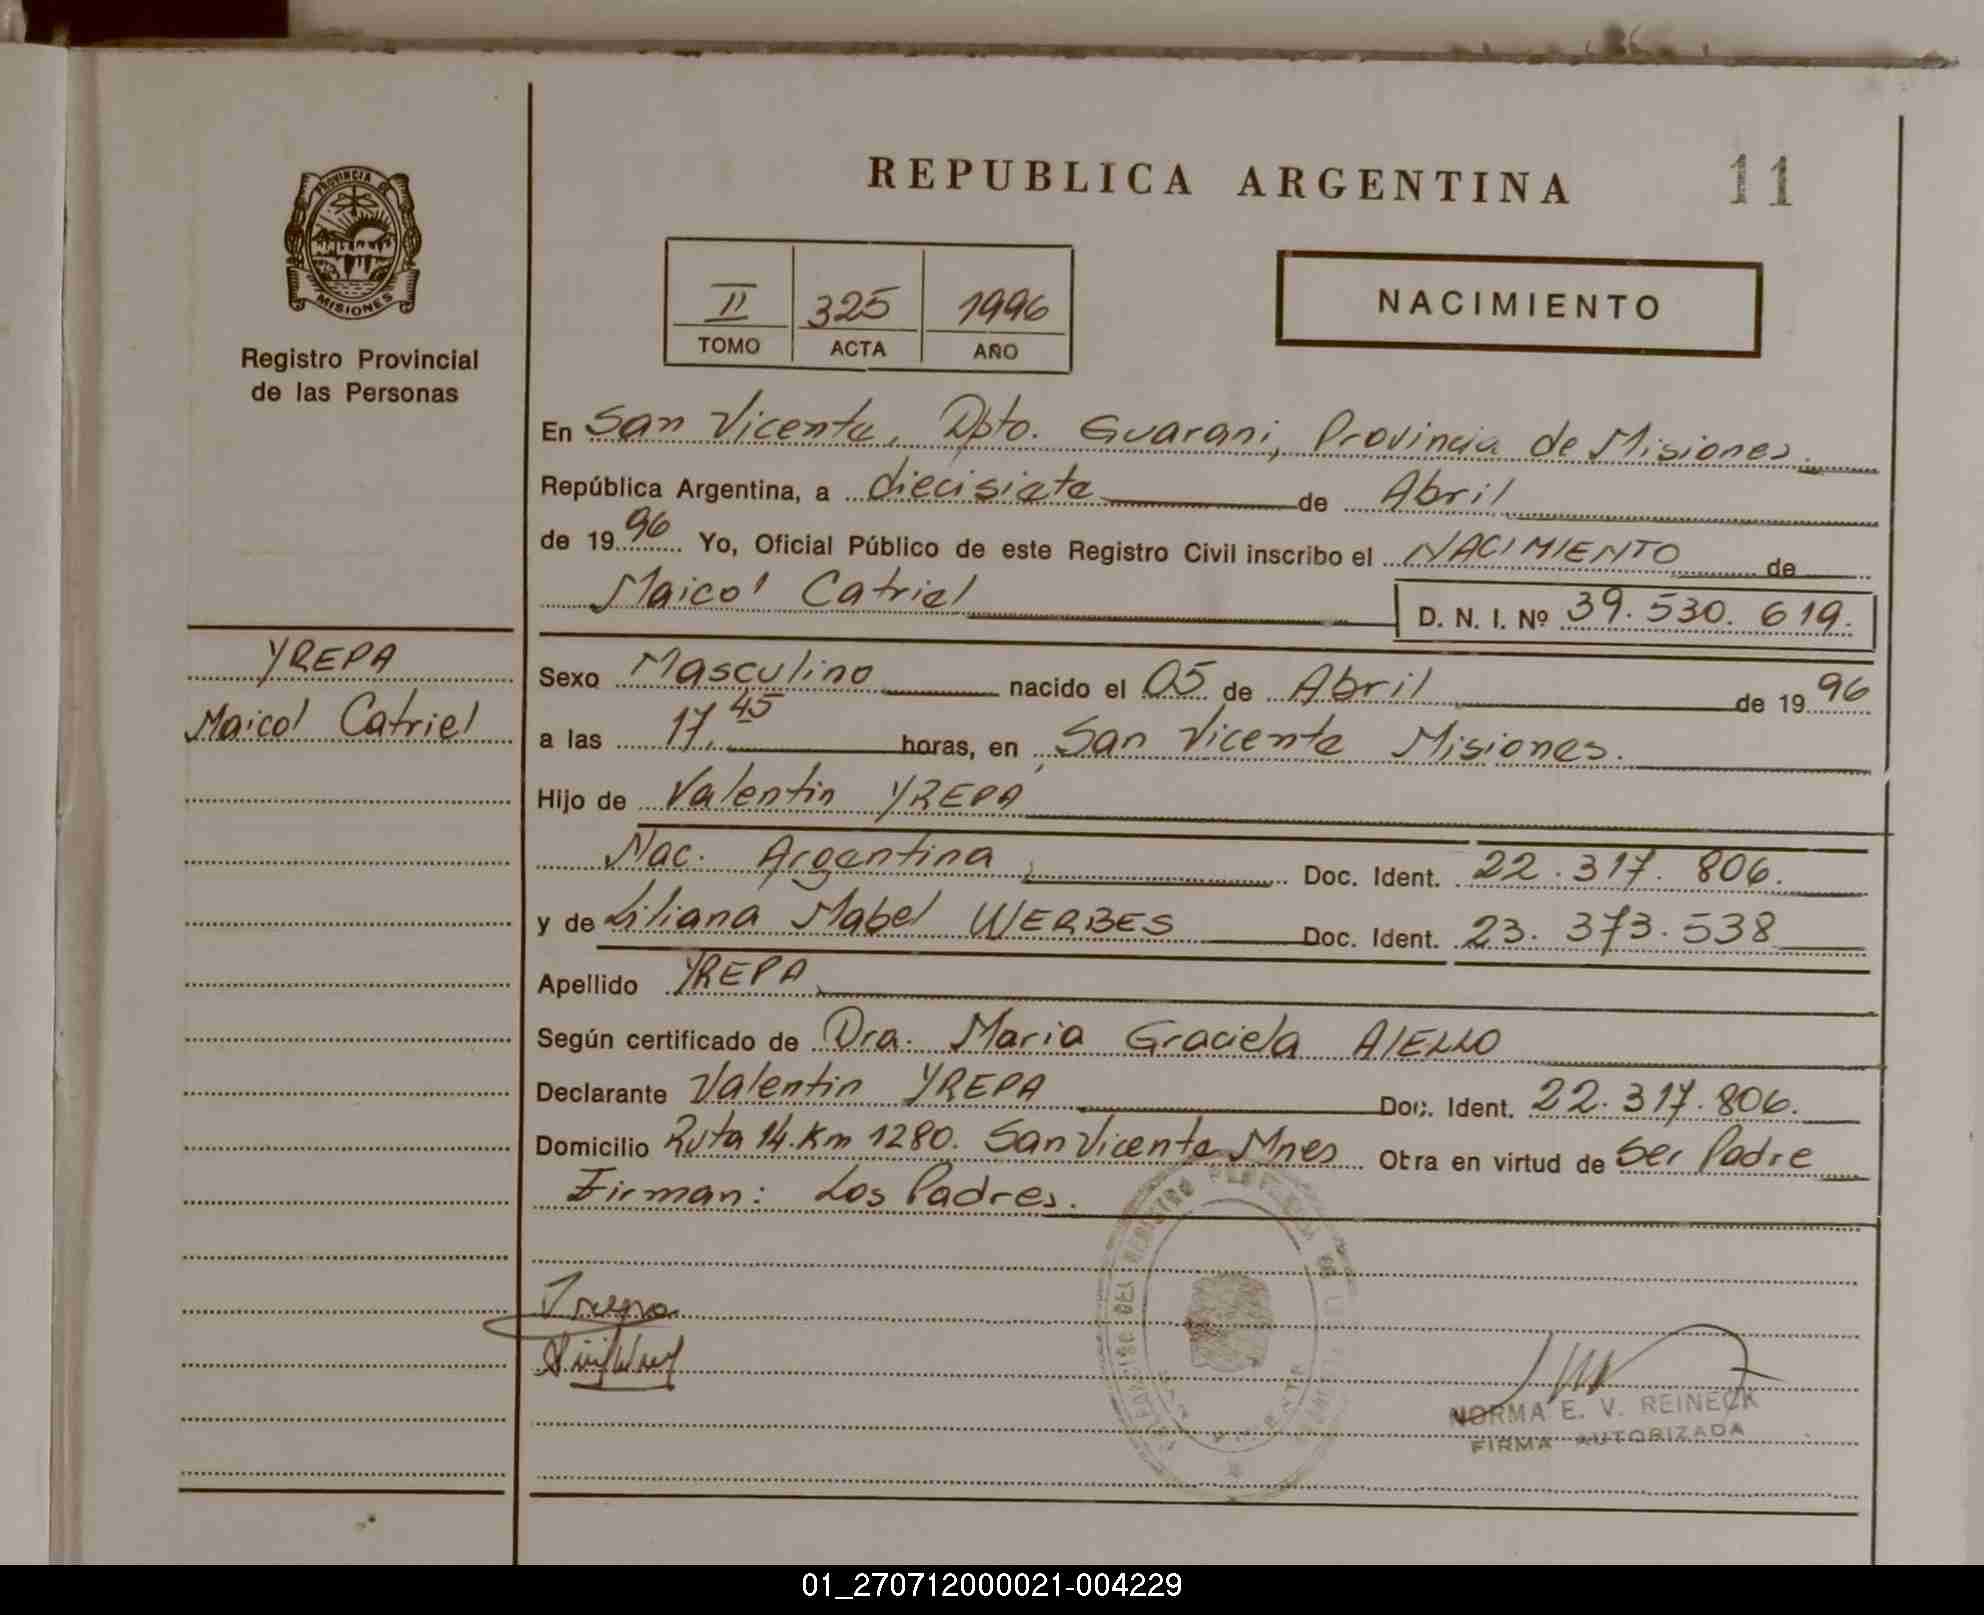 REPUBLICA ARGENTINA
11
PROVINCIA DE
MISIONES
Registro Provincial
de las Personas
II 325 1996
TOMO ACTA AÑO
NACIMIENTO
En San Vicente, Dpto. Guarani, Provincia de Misiones.
República Argentina, a diecisiete de Abril
de 19 96 Yo, Oficial Público de este Registro Civil inscribo el NACIMIENTO de
Maicol Catriel D. N. I. Nº 39.530.619.
YREPA
Maicol Catriel
Sexo Masculino nacido el 05 de Abril de 19 96
a las 17,45 horas, en San Vicente Misiones.
Hijo de Valentin YREPA
Nac. Argentina Doc. Ident. 22.317.806.
y de Liliana Mabel WERBES Doc. Ident. 23.373.538
Apellido YREPA
Según certificado de Dra. Maria Graciela AIELLO
Declarante Valentin YREPA Doc. Ident. 22.317.806.
Domicilio Ruta 14.Km 1280. San Vicente Mnes Obra en virtud de Ser Padre
Firman: Los Padres.
DEL REGISTRO
NORMA E. V. REINECK
FIRMA AUTORIZADA
01_270712000021-004229